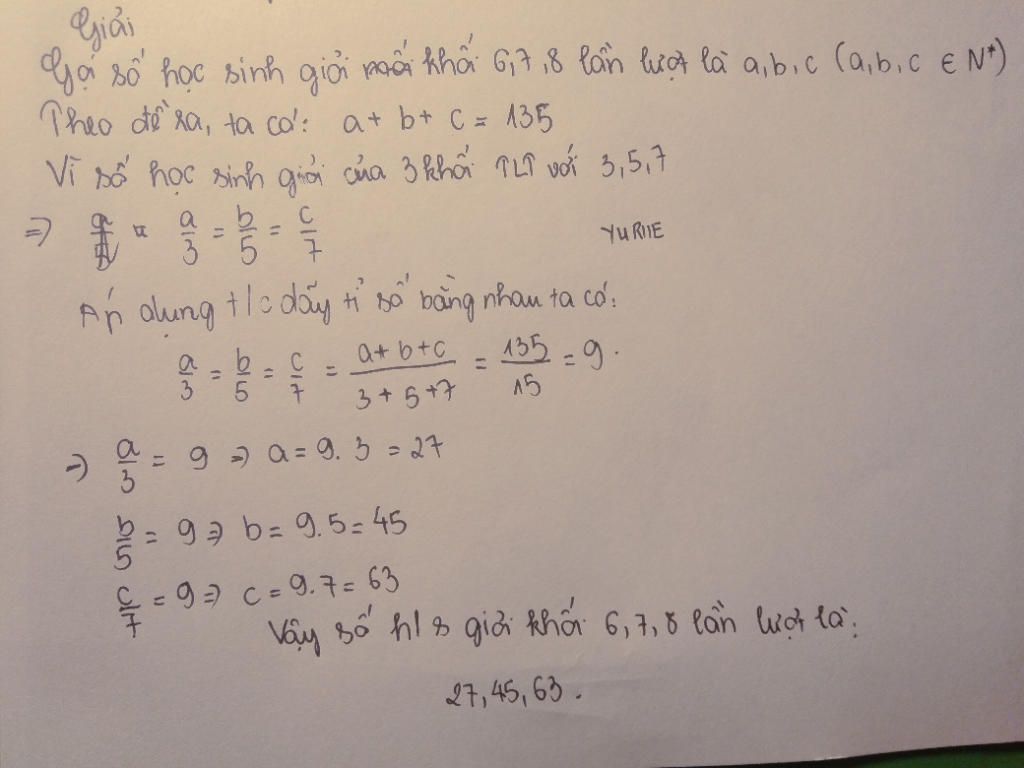 Giải
Gọi số học sinh giỏi khối 6,7,8 lần lượt là a,b,c (a,b,c ∈ N*)
Theo đề ra, ta có: a + b + c = 135
Vì số học sinh giỏi của 3 khối TLT với 3,5,7
=> a/3 = b/5 = c/7
YURIIE
Áp dụng t/c dãy tỉ số bằng nhau ta có:
a/3 = b/5 = c/7 = (a+b+c)/(3+5+7) = 135/15 = 9.
=> a/3 = 9 => a = 9.3 = 27
b/5 = 9 => b = 9.5 = 45
c/7 = 9 => c = 9.7 = 63
Vậy số h/s giỏi khối 6,7,8 lần lượt là:
27,45,63.